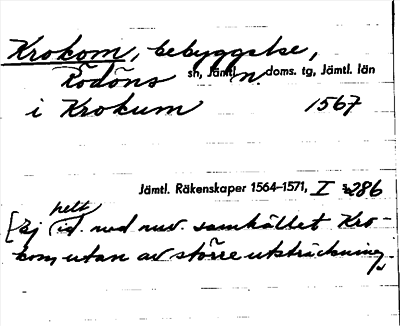 Krokom, bebyggelse,
Rödöns sn, Jämtl. n. doms. tg, Jämtl. län
i Krokum 1567
Jämtl. Räkenskaper 1564–1571, I s. 286
[Ej helt id. med nuv. samhället Kro-
kom, utan av större utsträckning.]